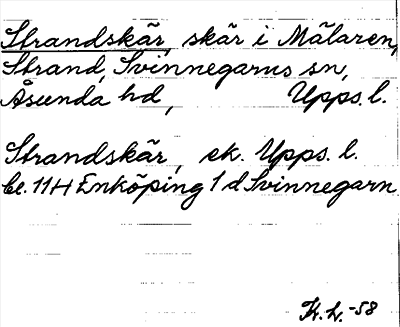 Strandskär, skär i Mälaren,
Strand, Svinnegarns sn,
Åsunda hd, Upps. l.
Strandskär, ek. Upps. l.
bl. 11H Enköping 1 d Svinnegarn
H. L. -58